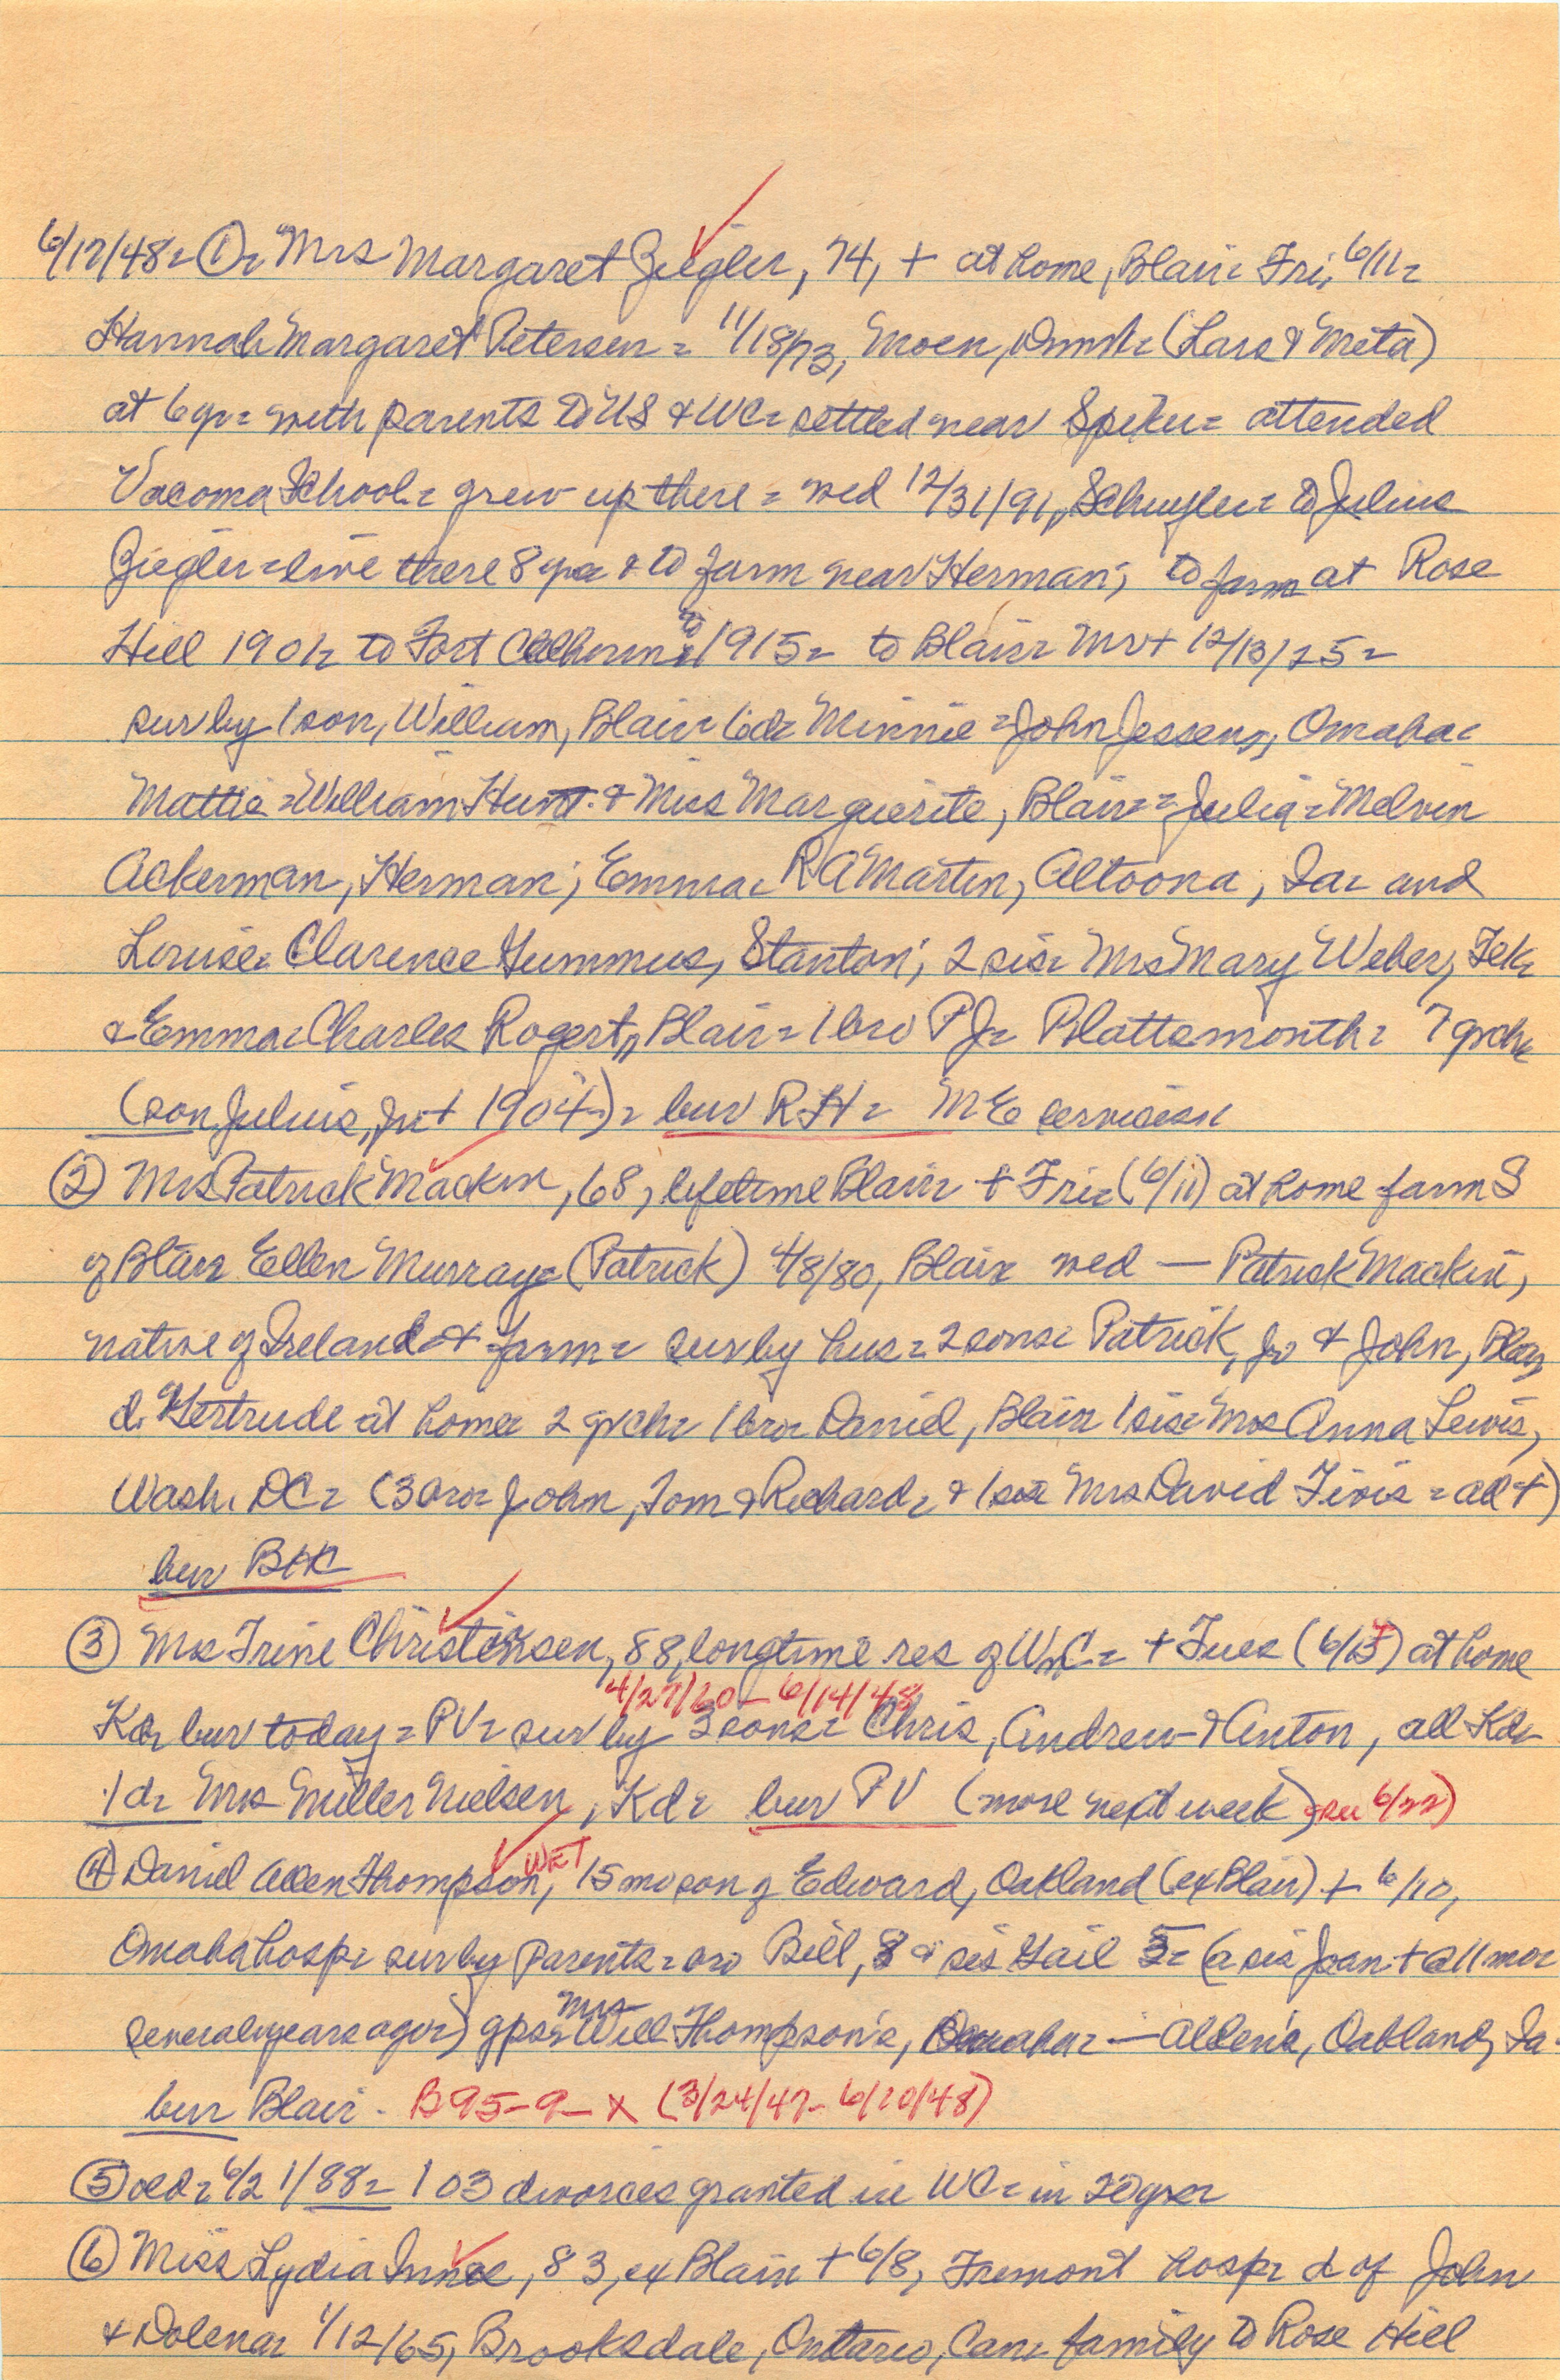 6/17/48= ① = Mrs Margaret Ziegler, 74, + at home, Blair= Fri, 6/11=
Hannah Margaret Petersen = 11/18/73, Moen, Dnmk= (Lars & Meta)
at 6 yr= with parents to US & WC= settled near Spiker= attended
Vacoma School= grew up there = wed 12/31/91, Schuyler= to Julius
Ziegler= live there 8 yr= & to farm near Herman; to farm at Rose
Hill 1901= to Fort Calhoun= to 1915= to Blair= Mr + 12/13/25=
sur by 1 son, William, Blair= 6 d= Minnie = John Jessens, Omaha=
Mattie = William Hunt & Miss Marguerite, Blair= = Julia = Melvin
Ackerman, Herman; Emma= R A Martin, Altoona, Ia= and
Louise= Clarence Hummus, Stanton; 2 sis= Mrs Mary Weber, Tek=
& Emma= Charles Rogert, Blair= 1 bro P J= Plattsmouth= 7 grch=
(son Julius, Jr + 1904)= bur RH= ME services=
② Mrs Patrick Mackin, 68, lifetime Blair= + Fri= (6/11) at home farm S
of Blair= Ellen Murray= (Patrick) 4/8/80, Blair= wed — Patrick Mackin,
native of Ireland & farm= sur by hus= 2 sons= Patrick, Jr & John, Blair,
d. Gertrude at home= 2 grch= 1 bro= Daniel, Blair= 1 sis= Mrs Anna Lewis,
Wash. DC= (3 bro= John, Tom & Richard= & 1 sis= Mrs David Tivis = all +)
bur BHC
③ Mrs Trine Christensen, 88, longtime res of WnC= + Tues (6/15) at home
4/27/60 — 6/14/48
Kd= bur today = PV= sur by 3 sons= Chris, Andrew & Anton, all Kd=
1 d= Mrs Miller Nielsen, Kd= bur PV (more next week) see 6/22)
④ Daniel Allen Thompson, WET 15 mo son of Edward, Oakland (ex Blair) + 6/10,
Omaha hosp= sur by parents = bro Bill, 8 & sis Gail 5= (a sis Joan + @ 11 mo=
several years ago=) gps= Mrs Will Thompson's, Omaha= — Alden's, Oakland, Ia.
bur Blair - B95-9-X (3/24/47- 6/10/48)
⑤ old= 6/21/88= 103 divorces granted in WC= in 20 yrs=
⑥ Miss Lydia, 83, ex Blair= + 6/8, Fremont hosp= d of John
& Dolena= 1/12/65, Brooksdale, Ontario, Can= family to Rose Hill